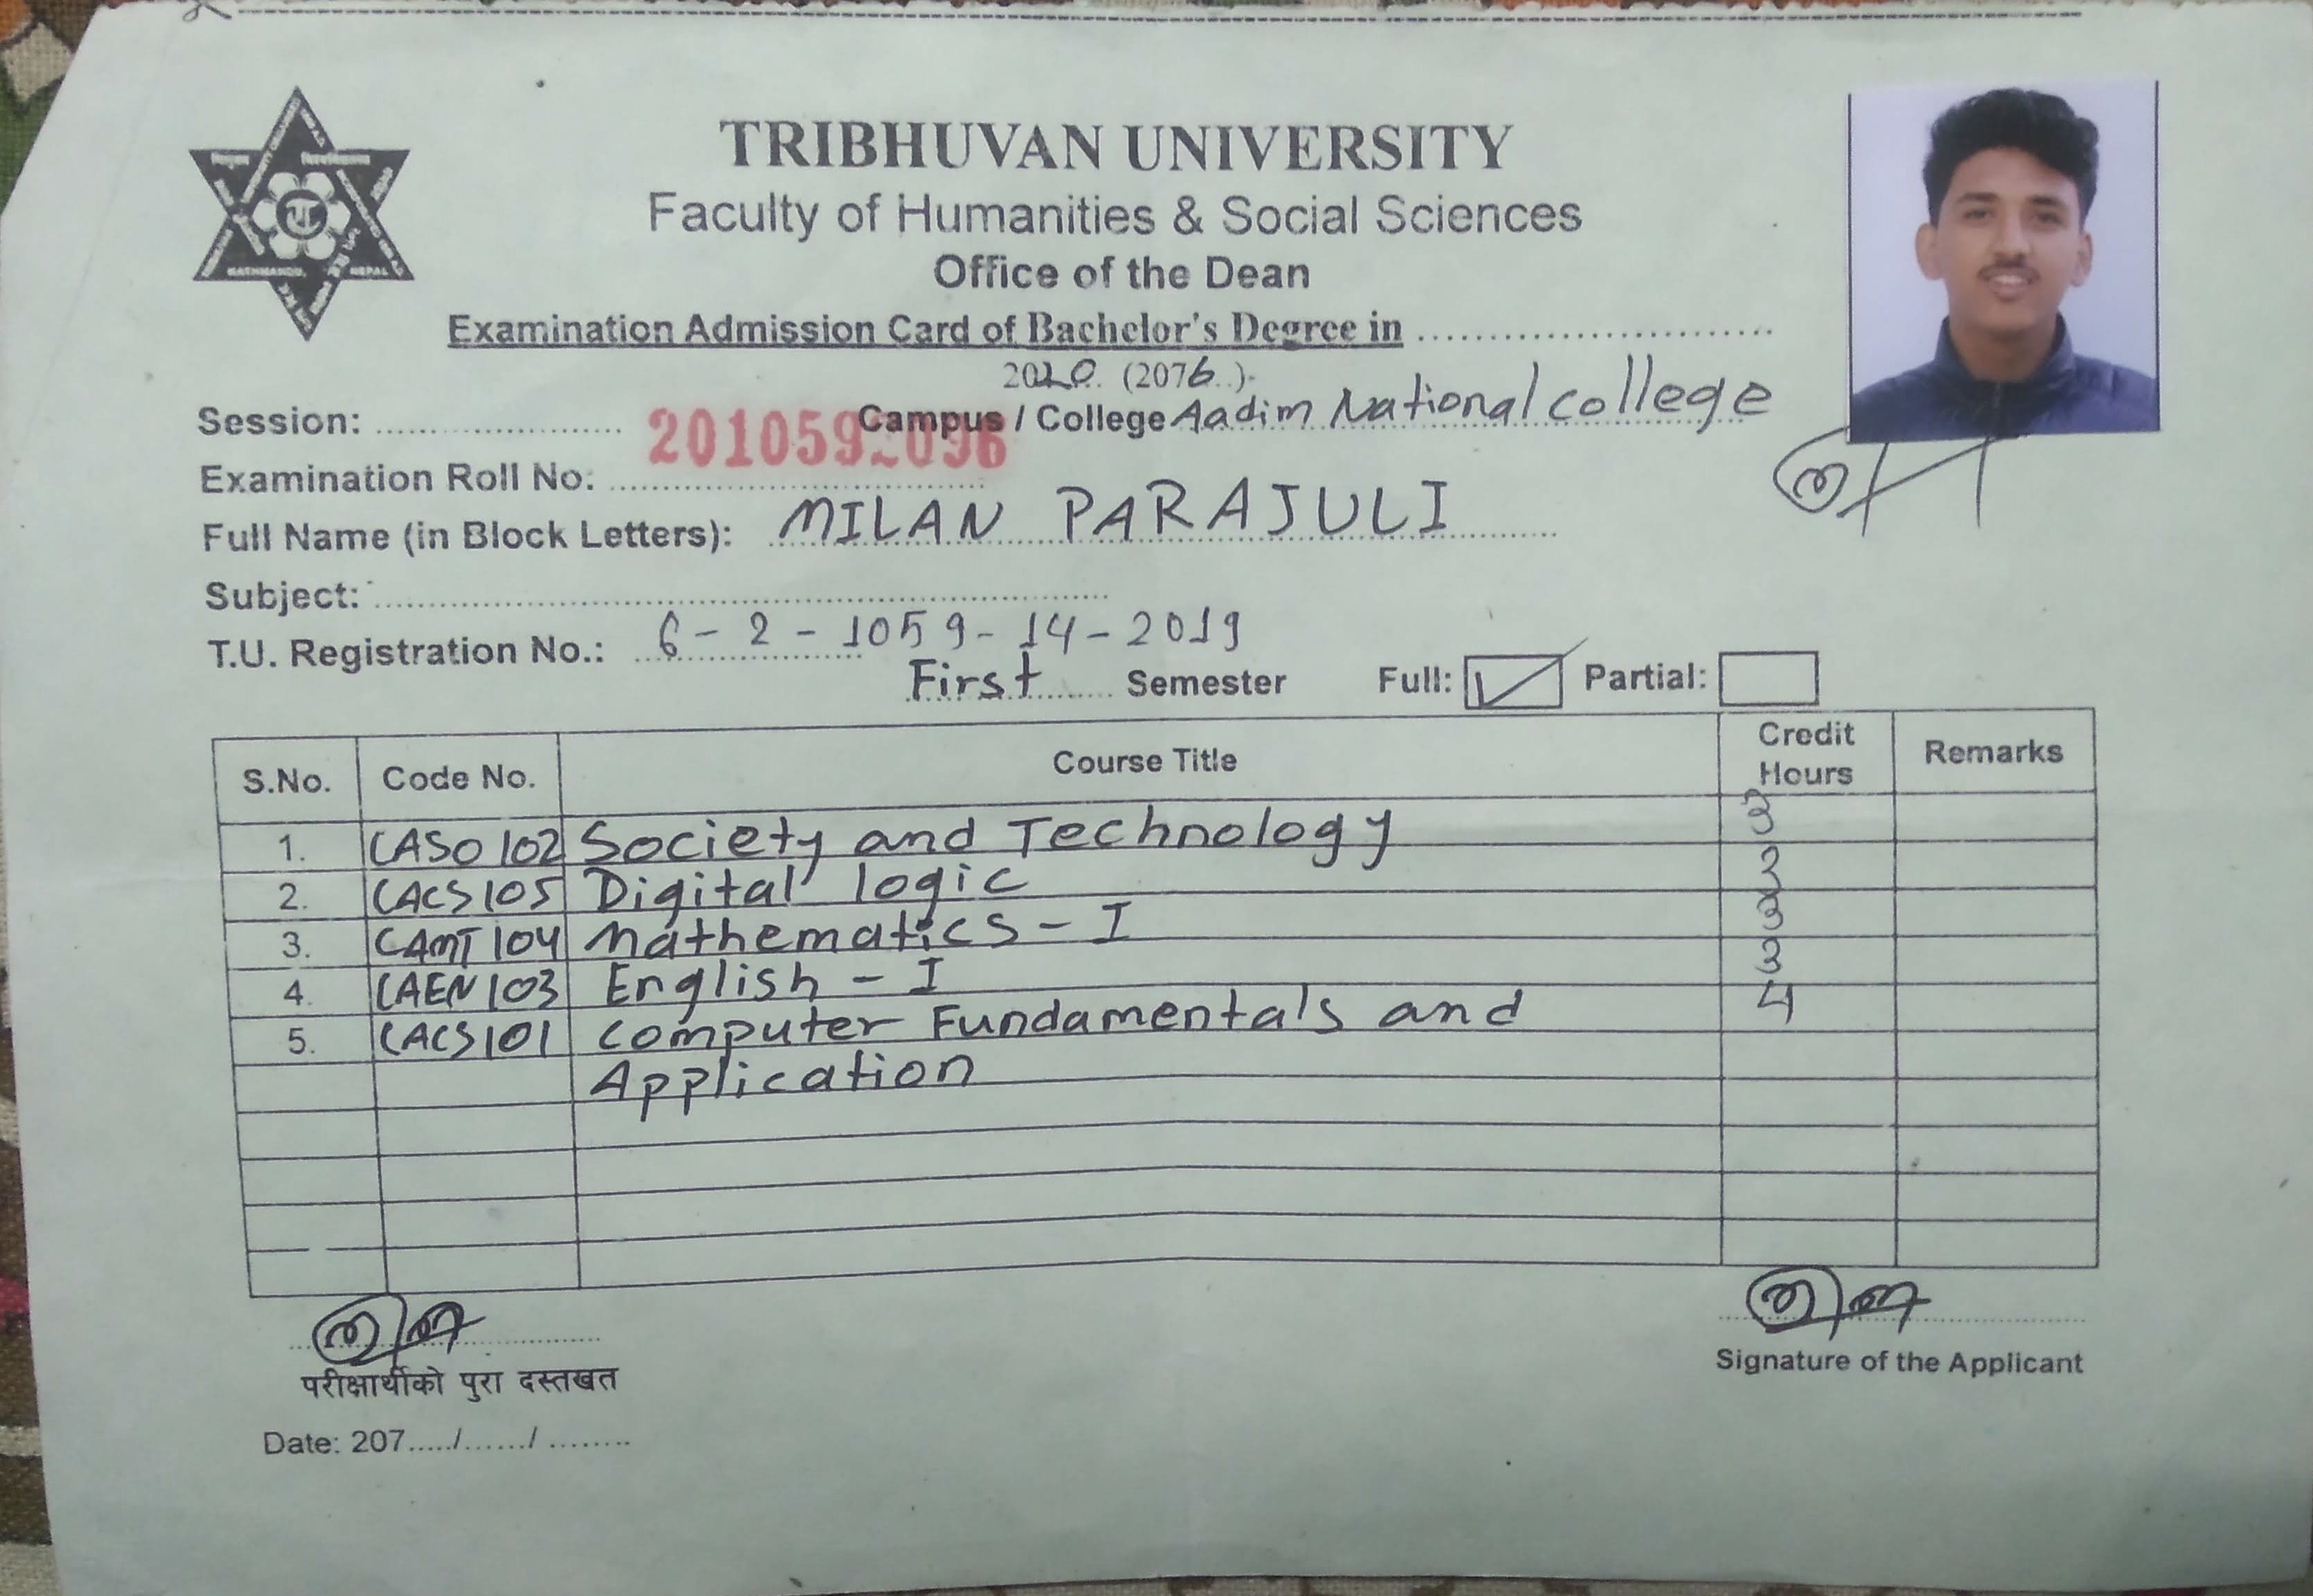 TRIBHUVAN UNIVERSITY
Faculty of Humanities & Social Sciences
Office of the Dean
Examination Admission Card of Bachelor's Degree in ........................
2020 (2076..)
Session: ........................ Campus / College Aadim National college
Examination Roll No: 2010592096
Full Name (in Block Letters): MILAN PARAJULI
Subject: ........................
T.U. Registration No.: 6-2-1059-14-2019
First Semester Full: Partial:
S.No. Code No. Course Title Credit Hours Remarks
1. CASO 102 Society and Technology 3
2. CACS 105 Digital logic 3
3. CAMT 104 Mathematics - I 3
4. CAEN 103 English - I 3
5. CACS 101 Computer Fundamentals and 4
Application
परीक्षार्थीको पुरा दस्तखत
Signature of the Applicant
Date: 207...../......./ ........